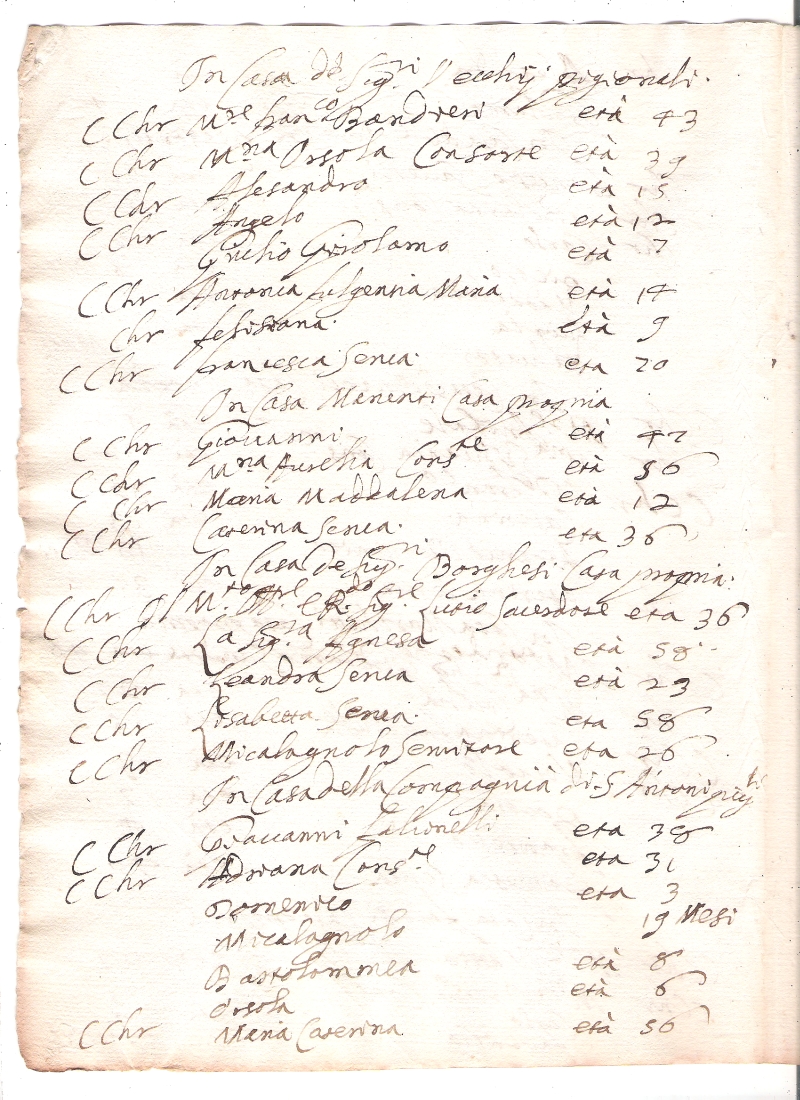 In Casa de Sig.ri Vecchij pigionali.
C Chr M.re Fran.co Bandieri età 43
C Chr M.na Orsola Consorte età 39
C Chr Alesandro età 15
C Chr Angelo età 12
Giulio Girolamo età 7
C Chr Antonia Fulgentia Maria età 14
Chr Felisiana. età 9
C Chr Francesca Serua. eta 20
In Casa Manenti Casa propria
C Chr Giouanni età 42
C Chr M.na Aurelia Cons.te età 36
C Chr Maria Maddalena età 12
C Chr Caterina Serua. eta 36
In Casa de Sig.ri Borghesi Casa propria.
C Chr Il M.to Ill.re e R.do Sig.re Lutio Sacerdote eta 36
C Chr La Sig.ra Agnesa età 58
C Chr Leandra Serua età 23
C Chr Lisabetta Serua. eta 58
C Chr Micalagnolo Seruitore eta 26
In Casa della Compagnia di S Antoni
C Chr Giouanni eta 38
C Chr Adriana Cons.te eta 31
Domenico eta 3
Micalagnolo 19 Mesi
Bartolommea età 8
Orsola età 6
C Chr Maria Caterina età 56